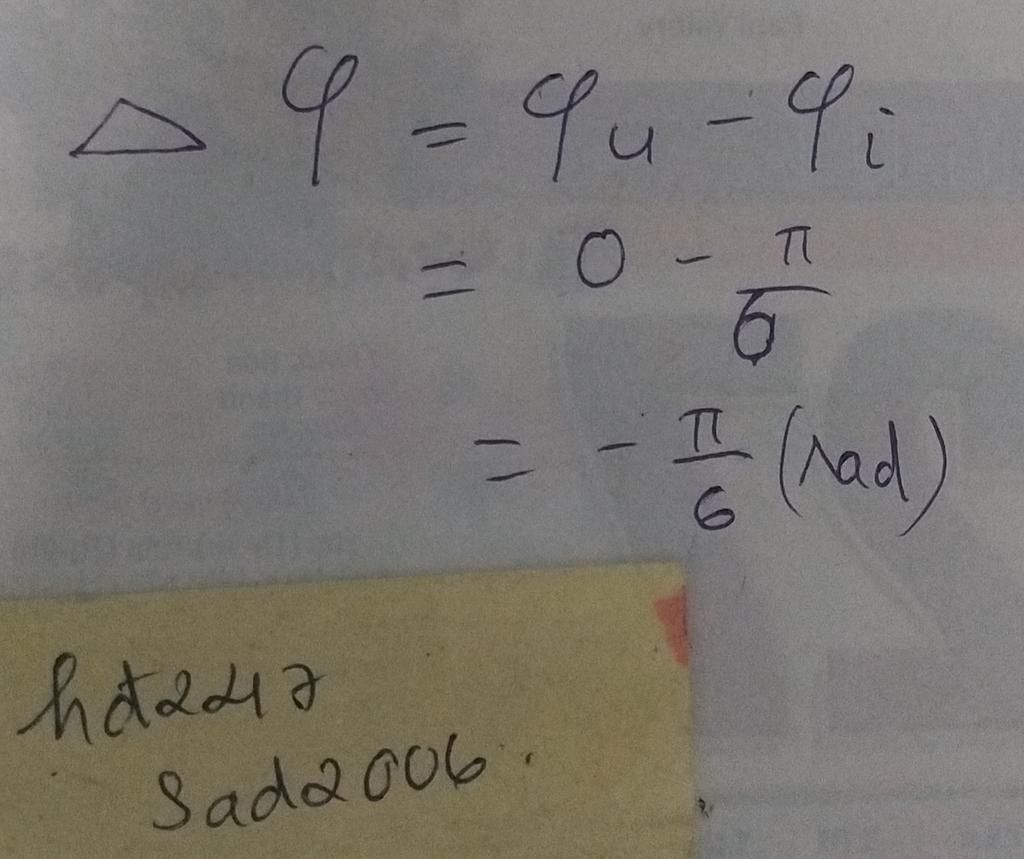 Δφ = φu - φi
= 0 - π/6
= - π/6 (rad)
hd247
Sad2006.